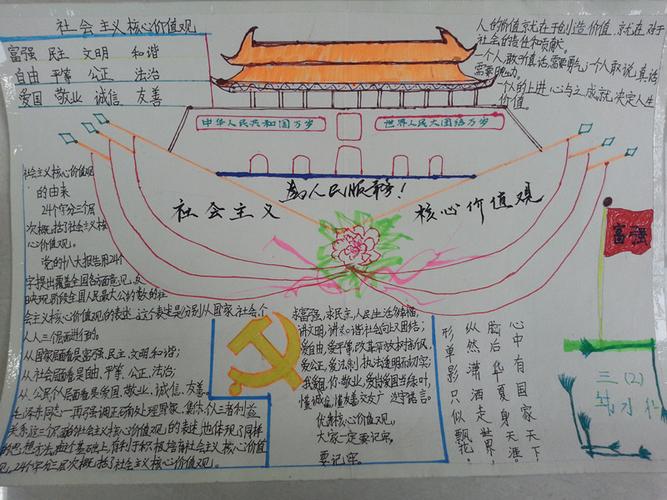 社会主义核心价值观
富强 民主 文明 和谐
自由 平等 公正 法治
爱国 敬业 诚信 友善
人的价值就在于创造价值,就在对于
社会的责任和贡献。
一个人敢于真话,需要
一个人敢说真话
一个人的上进心与之成就,决定人生
价值。
中华人民共和国万岁
世界人民大团结万岁
为人民服务!
社会主义
核心价值观
社会主义核心价值观
的由来
24个字分三个层
次概括了社会主义核
心价值观。
党的十八大报告用24个
字提出覆盖全国各方面意见,反
映现阶段全国人民最大公约数的社
会主义核心价值观的表述,这个表述是分别从国家、社会、个
人三个层面进行的。
从国家层面看是富强、民主、文明、和谐;
从社会层面看是自由、平等、公正、法治;
从公民个人层面看是爱国、敬业、诚信、友善。
毛泽东同志一再强调正确处理国家、集体、个人三者利益
关系,这三个层面社会主义核心价值观的表述,也体现了同样
的思想方法,
有利于积极培育社会主义核心价
值观,24个字分三层次概括了社会主义核心价值观。
求富强,求民主,人民生活
幸福,
讲文明,讲和谐,社会向上又团结;
爱自由,爱平等,改革开放
爱公正,爱法制,执法透明
爱国
敬业
懂诚信,懂友善
核心价值观,
大家一定要记牢,
要记牢。
心中有国家天下
脑后华夏身天涯
纵然潇洒走世界,
形单影只似飘花。
富强
三(2)